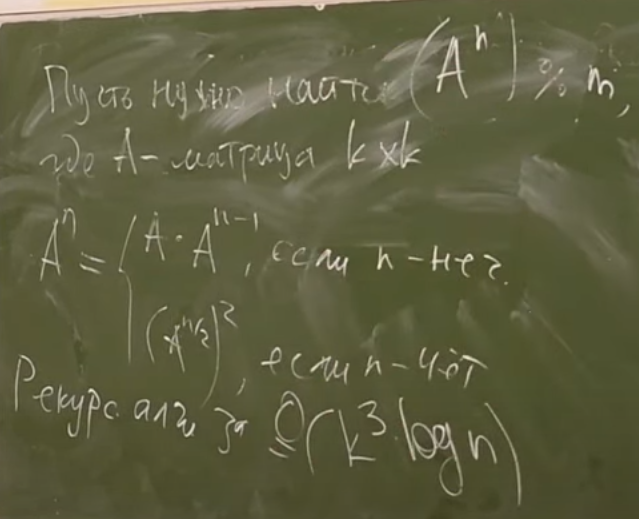 Пусть нужно найти (Aⁿ) % m,
где A - матрица k×k
Aⁿ = { A · Aⁿ⁻¹, если n - неч.
(A^(n/2))², если n - чёт
Рекурс. алг. за O(k³·log n)